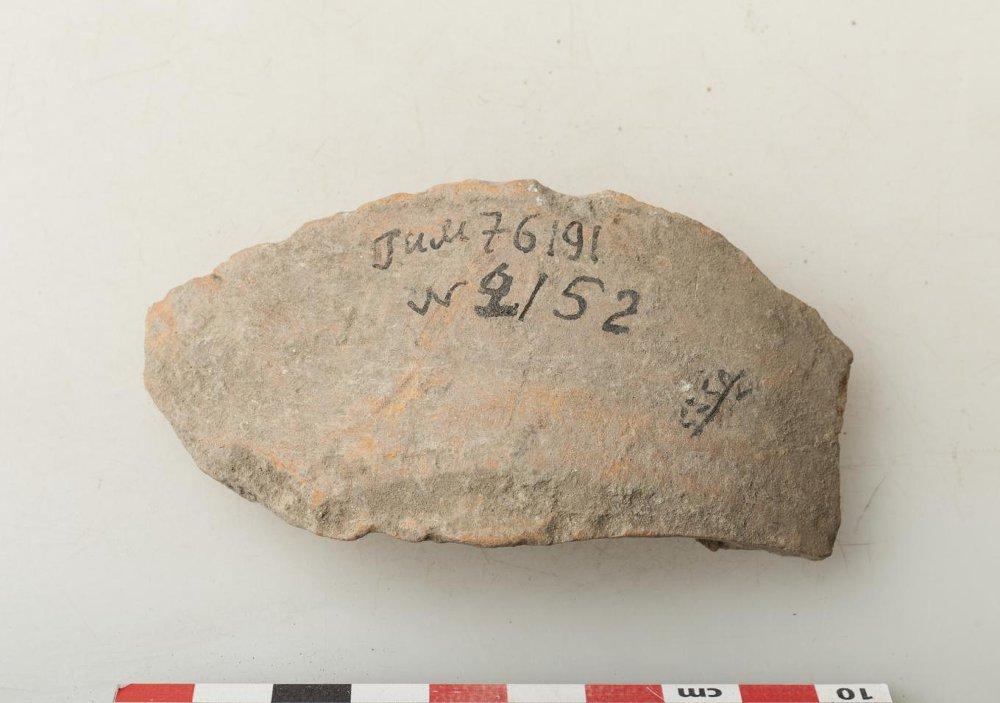 Гим 76191
№ 2/52
cm 10